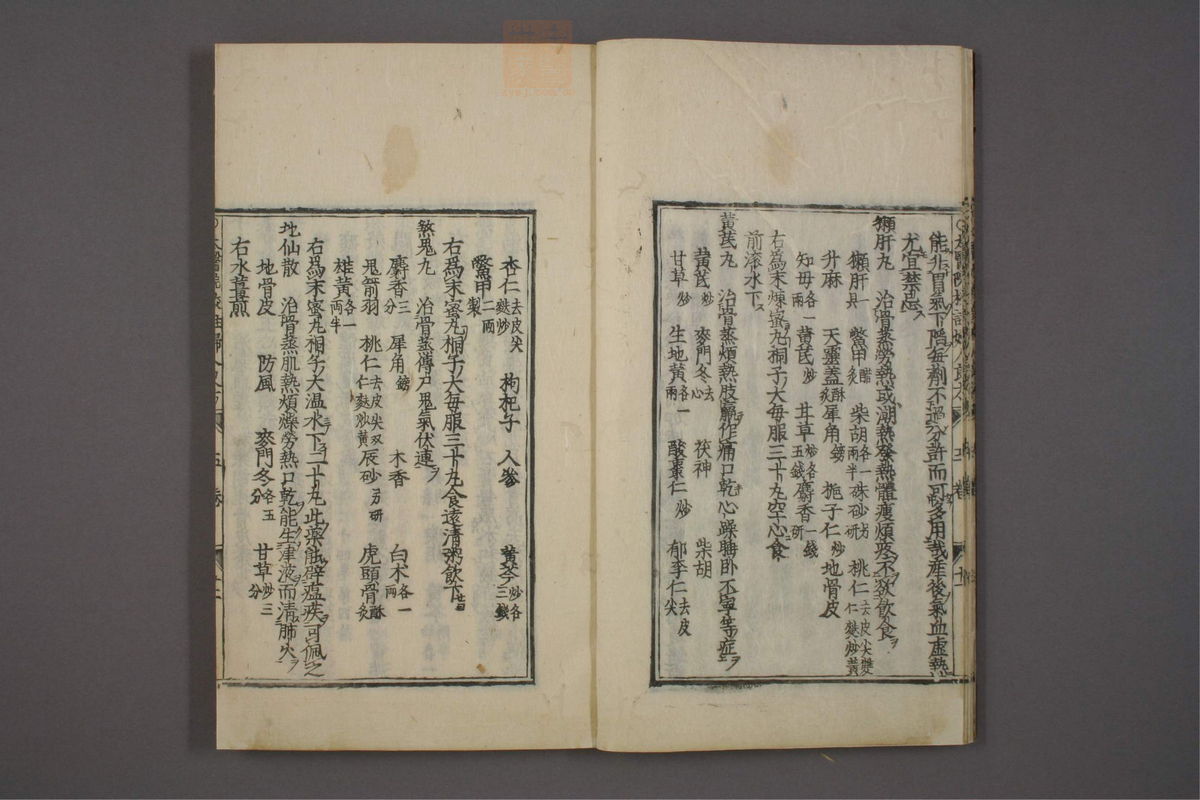 能升胃氣下陷每劑不過分許而可多用哉產後氣血虛熱
尤宜禁忌
獺肝丸 治骨蒸勞熱或潮熱發熱體瘦煩疼不欲飲食
獺肝一具 鱉甲醋炙 柴胡各一兩半 硃砂研 桃仁去皮尖雙仁麩炒黃
升麻 天靈蓋酥炙 犀角鎊 梔子仁炒 地骨皮
知母各一兩 黃芪炒 甘草炒各五錢 麝香一錢研
右為末煉蜜丸桐子大每服三十丸空心食
前滾水下
黃芪丸 治骨蒸煩熱肢體作痛口乾心躁睡卧不寧等症
黃芪炒 麥門冬去心 茯神 柴胡
甘草炒 生地黃各一兩 酸棗仁炒 郁李仁去皮尖
杏仁去皮尖麩炒 枸杞子 人參 黃芩炒各三錢
鱉甲二兩製
右為末蜜丸桐子大每服三十丸食遠清粥飲下
煞鬼丸 治骨蒸傳尸鬼氣伏連
麝香三分 犀角鎊 木香 白木各一兩
鬼箭羽 桃仁去皮尖双仁麩炒黃 辰砂另研 虎頭骨酥炙
雄黃各一兩半
右為末蜜丸桐子大温水下二十丸此藥能辟瘟疾可佩之
地仙散 治骨蒸肌熱煩燥勞熱口乾能生津液而清肺火
地骨皮 防風 麥門冬各五分 甘草炒三分
右水煎